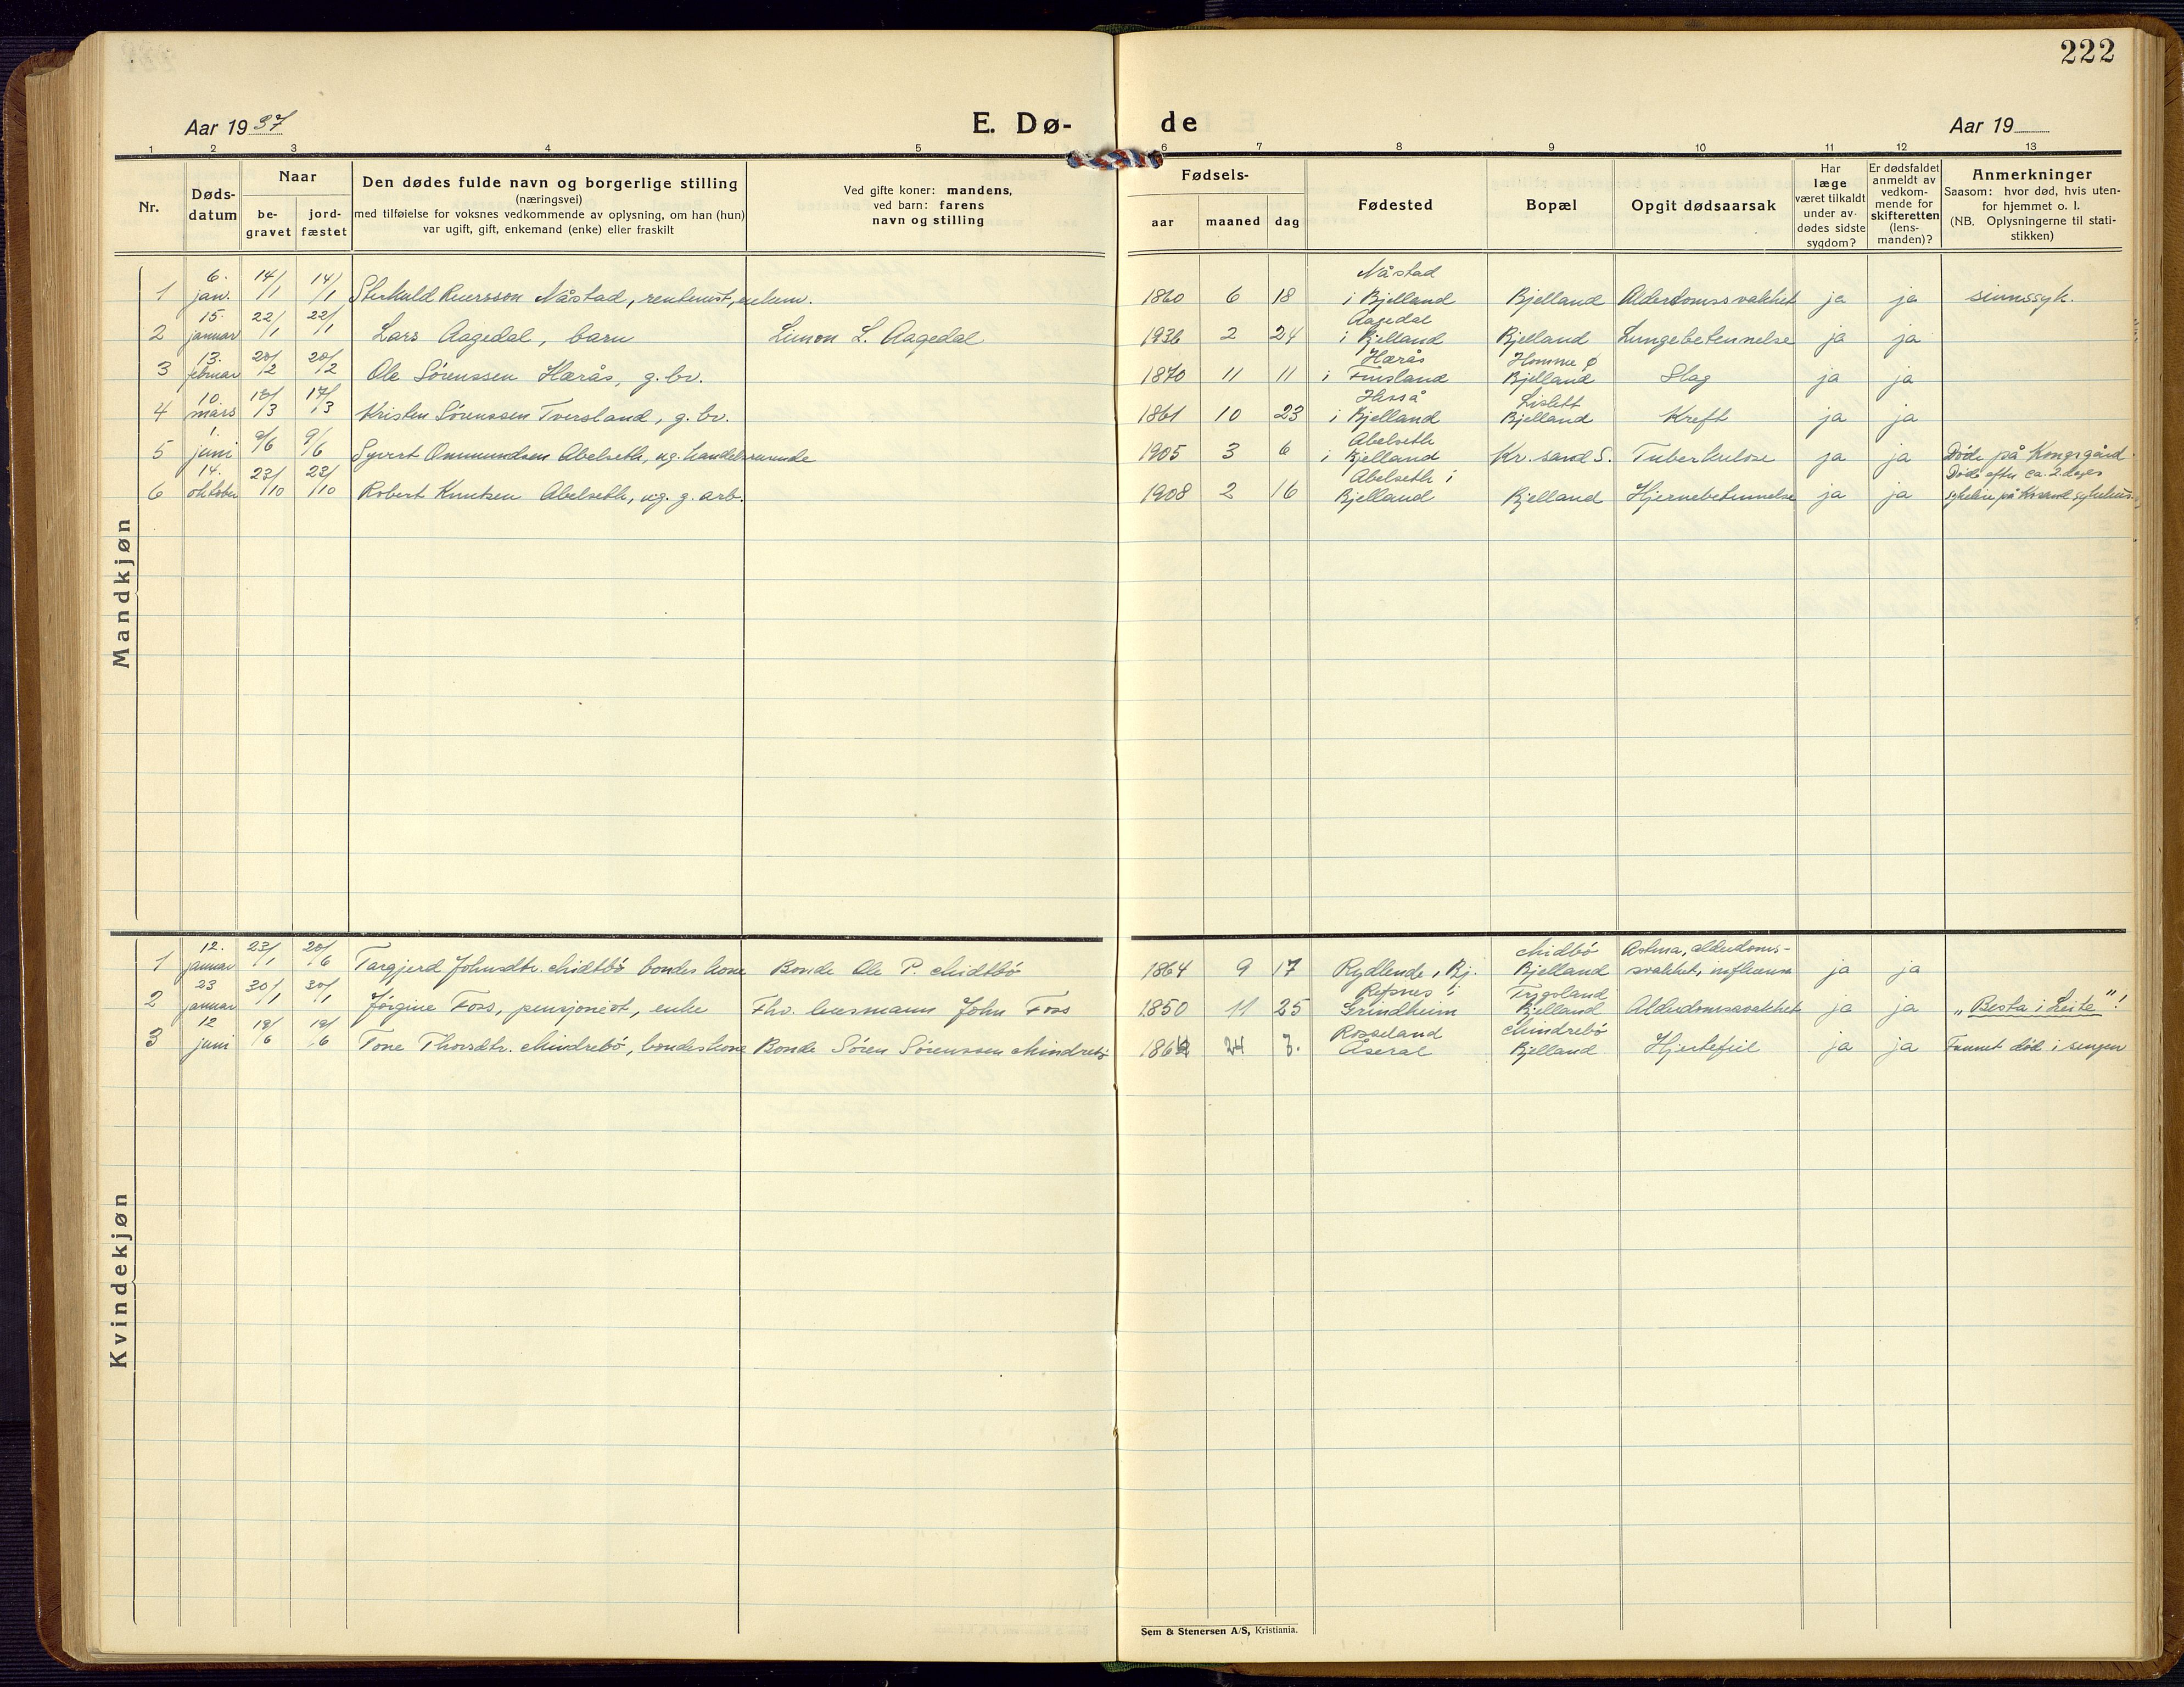 222
Aar 1937
E. Dø-
de
Aar 19
1 2 3 4 5 6 7 8 9 10 11 12 13
Nr.
Døds-
datum
Naar
be-
gravet
jord-
fæstet
Den dødes fulde navn og borgerlige stilling
(næringsvei)
med tilføielse for voksnes vedkommende av oplysning, om han (hun)
var ugift, gift, enkemand (enke) eller fraskilt
Ved gifte koner: mandens,
ved barn: farens
navn og stilling
Fødsels-
aar maaned dag
Fødested
Bopæl
Opgit dødsaarsak
Har
læge
været tilkaldt
under av-
dødes sidste
sygdom?
Er dødsfaldet
anmeldt av
vedkom-
mende for
skifteretten
(lens-
manden)?
Anmerkninger
Saasom: hvor død, hvis uten-
for hjemmet o. l.
(NB. Oplysningerne til stati-
stikken)
Mandkjøn
6. 14/1 14/1 Nåstad
1 jan. Nåstad, rentenist, enkem. 1860 6 18 i Bjelland Bjelland Alderdomssvakhet ja ja sinnssyk.
15. 22/1 22/1 Aagedal
2 januar Lars Aagedal, barn Simon L. Aagedal 1936 2 24 i Bjelland Bjelland Lungebetennelse ja ja
13. 20/2 20/2 Hærås Homme
3 februar Ole Sørenssen Hærås, g. br. 1870 11 11 i Finsland Bjelland Slag ja ja
10. 18/3 17/3
4 mars Kristen Sørenssen Tversland, g. br. 1861 10 23 i Bjelland Bjelland Kreft ja ja
1. 9/6 9/6 Abelseth
5 juni Syvert Ommundsen Abelseth, ug. handelsreisende 1905 3 6 i Bjelland Kr.sand S. Tuberkulose ja ja Døde på Kongsgård.
14. 23/10 23/10 Abelseth i Døde efter ca. 2 dages
6 oktober Robert Knutsen Abelseth, ug. g. arb. 1908 2 16 Bjelland Bjelland Hjernebetennelse ja ja sykeleie på Kr.sand sykehus.
Kvindekjøn
12. 23/1 20/6 Midbø Astma, alderdoms-
1 januar Targjerd Johnsdtr. Midtbø bondeskone Bonde Ole P. Midtbø 1864 9 17 Rydlende, Bj. Bjelland svakhet, influensa ja ja
23 30/1 30/1 Refsnes i Trygsland
2 januar Jørgine Foss, pensjonist, enke Fhv. lensmann John Foss 1850 11 25 Grindheim Bjelland Alderdomssvakhet ja ja "Besta i Leite"!
12 19/6 19/6 Rosseland Mindrebø
3 juni Tone Thorsdtr. Mindrebø, bondeskone Bonde Søren Sørenssen Mindrebø Åseral Bjelland Hjertefeil ja ja Funnet død i sengen
Sem & Stenersen A/S, Kristiania.